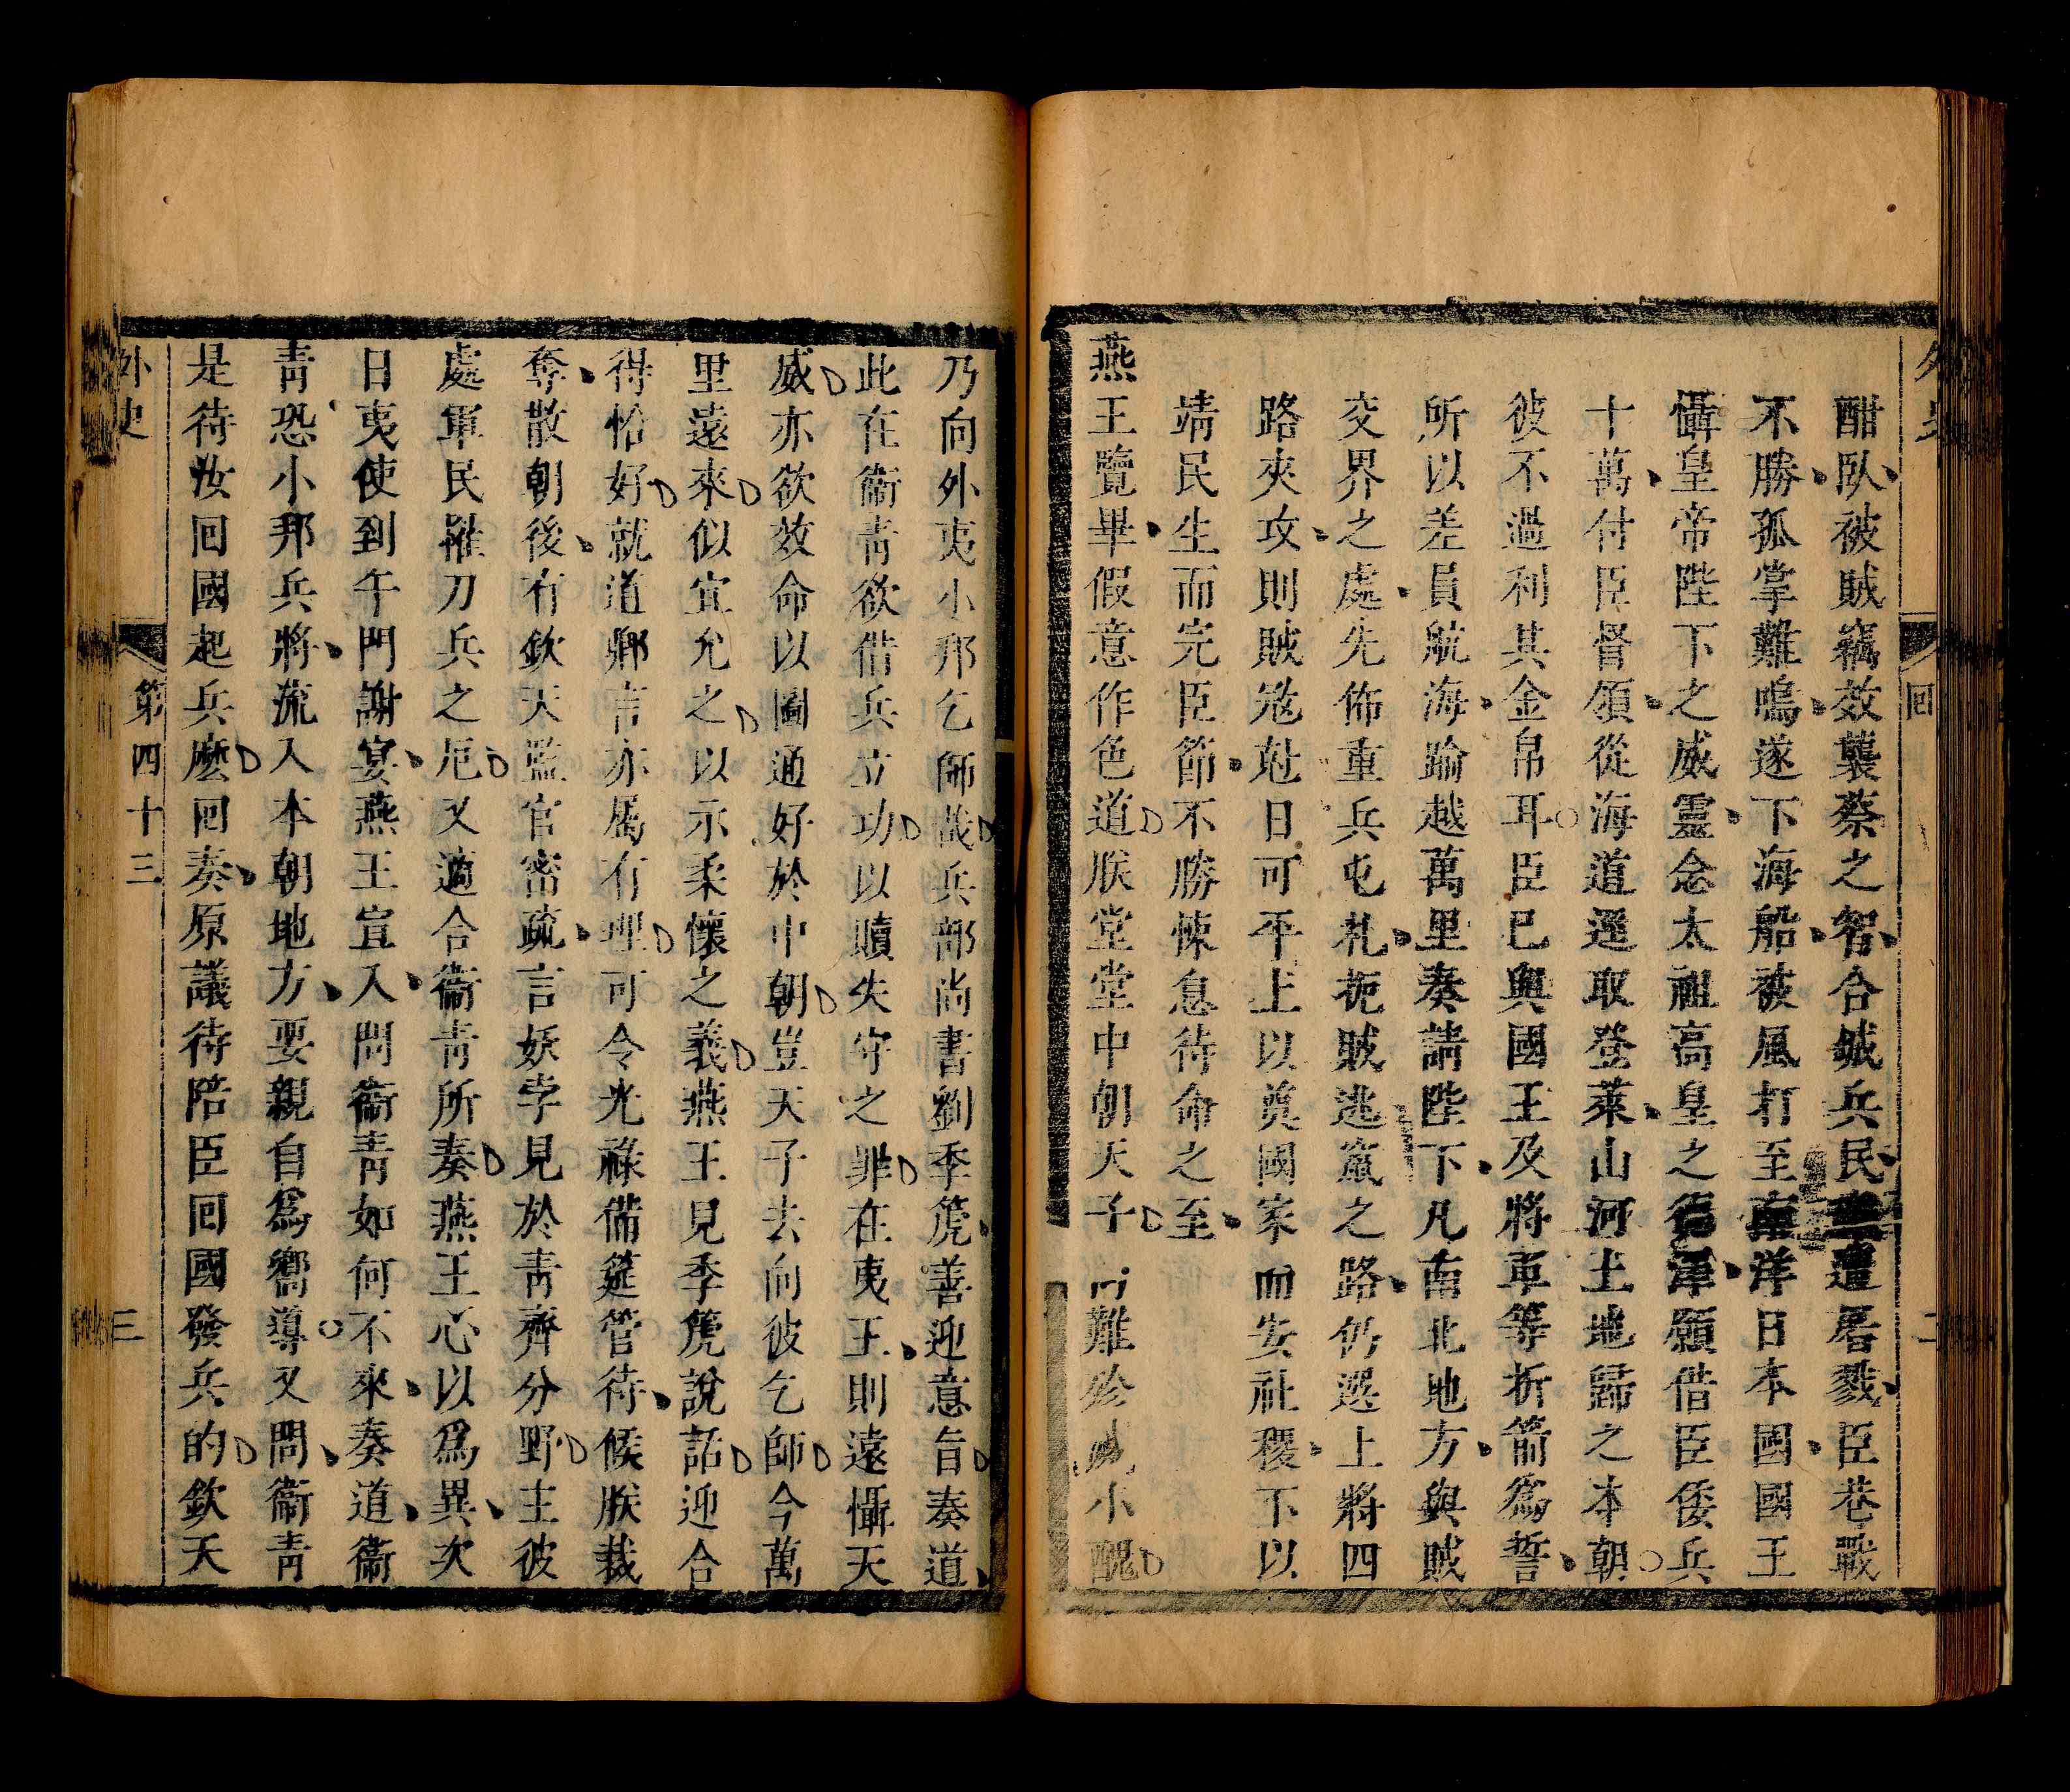 酣臥被賊竊效襲蔡之智合城兵民遭屠戮臣巷戰
不勝孤掌難鳴遂下海船被風打至南洋日本國國王
懾皇帝陛下之威靈念太祖高皇之德澤願借臣倭兵
十萬付臣督領從海道逕取登萊山河土地歸之本朝
彼不過利其金帛耳臣已與國王及將軍等折箭為誓
所以差員航海踰越萬里奏請陛下凡南北地方與賊
交界之處先佈重兵屯札扼賊逃竄之路仍選上將四
路夾攻則賊寇尅日可平上以奠國家而安社稷下以
靖民生而完臣節不勝悚息待命之至
燕王覽畢假意作色道朕堂堂中朝天子難殄小醜
乃向外夷小邦乞師哉兵部尚書劉季箎善迎意旨奏道
此在衞靑欲借兵立功以贖失守之罪在夷王則遠懾天
威亦欲效命以圖通好於中朝豈天子去向彼乞師今萬
里遠來似宜允之以示柔懷之義燕王見季箎說話迎合
得恰好就道卿言亦屬有理可令光祿備筵管待候朕裁
奪散朝後有欽天監官密疏言妖孛見於靑齊分野主彼
處軍民罹刀兵之厄又適合衞靑所奏燕王心以爲異次
日夷使到午門謝宴燕王宣入問衞靑如何不來奏道衞
靑恐小邦兵將流入本朝地方要親自爲嚮導又問衞靑
是待汝回國起兵麼回奏原議待陪臣回國發兵的欽天
外史 第四十三 三